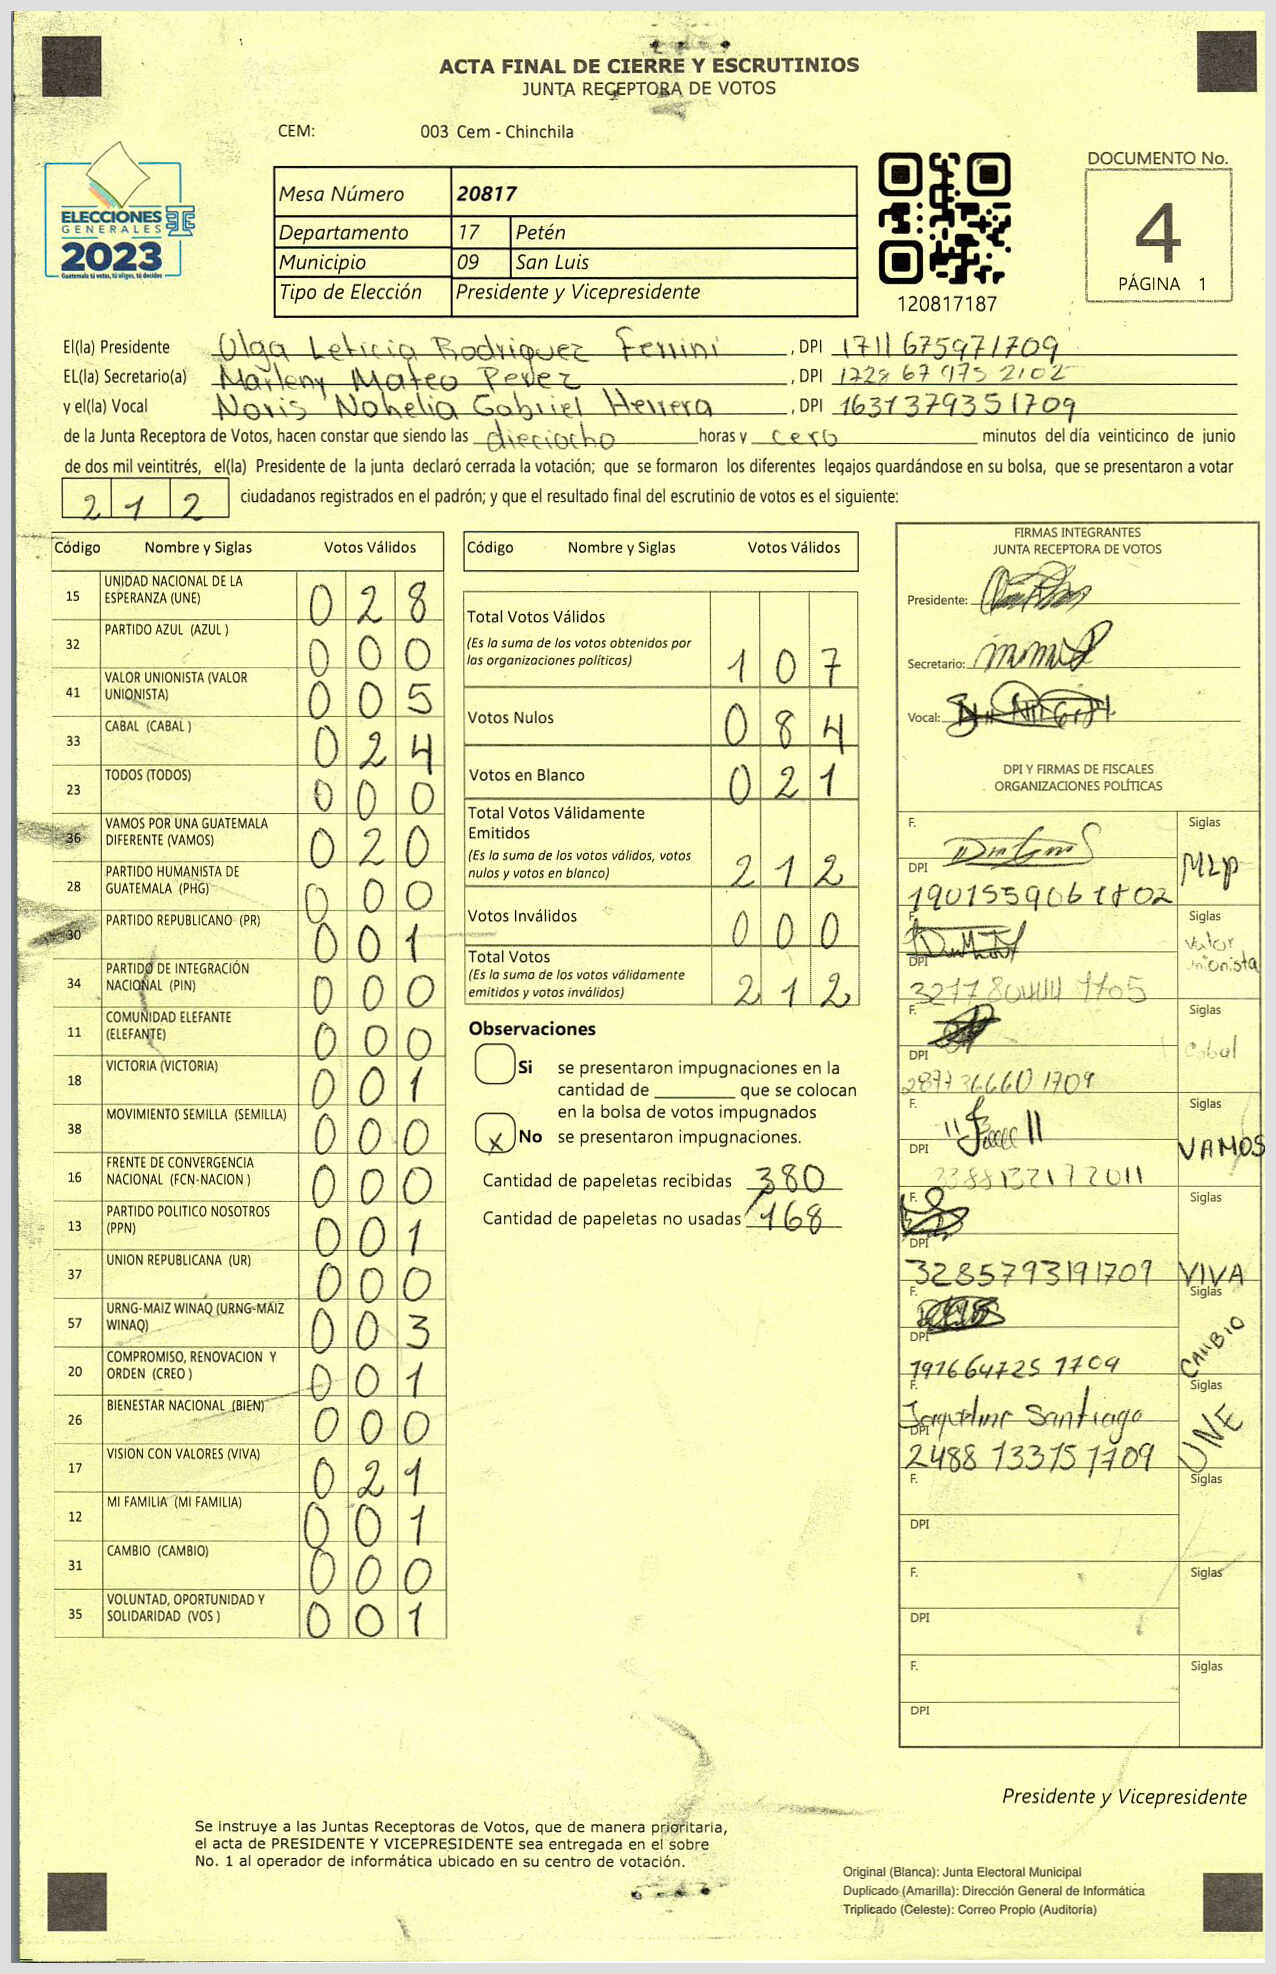 ACTA FINAL DE CIERRE Y ESCRUTINIOS
JUNTA RECEPTORA DE VOTOS
CEM: 003 Cem - Chinchila
ELECCIONES
GENERALES
2023
Guatemala tú votas, tú eliges, tú decides
Mesa Número 20817
Departamento 17 Petén
Municipio 09 San Luis
Tipo de Elección Presidente y Vicepresidente
120817187
DOCUMENTO No.
4
PÁGINA 1
El(la) Presidente Olga Leticia Rodriguez Ferrini, DPI 1711675971709
EL(la) Secretario(a) Marleny Mateo Perez, DPI 1728 67 975 2102
y el(la) Vocal Noris Nohelia Gabriel Herrera, DPI 1631379351709
de la Junta Receptora de Votos, hacen constar que siendo las dieciocho horas y cero minutos del día veinticinco de junio
de dos mil veintitrés, el(la) Presidente de la junta declaró cerrada la votación; que se formaron los diferentes legajos guardándose en su bolsa, que se presentaron a votar
212 ciudadanos registrados en el padrón; y que el resultado final del escrutinio de votos es el siguiente:
Código Nombre y Siglas Votos Válidos
15 UNIDAD NACIONAL DE LA ESPERANZA (UNE) 028
32 PARTIDO AZUL (AZUL ) 000
41 VALOR UNIONISTA (VALOR UNIONISTA) 005
33 CABAL (CABAL ) 024
23 TODOS (TODOS) 000
36 VAMOS POR UNA GUATEMALA DIFERENTE (VAMOS) 020
28 PARTIDO HUMANISTA DE GUATEMALA (PHG) 000
30 PARTIDO REPUBLICANO (PR) 001
34 PARTIDO DE INTEGRACIÓN NACIONAL (PIN) 000
11 COMUNIDAD ELEFANTE (ELEFANTE) 000
18 VICTORIA (VICTORIA) 001
38 MOVIMIENTO SEMILLA (SEMILLA) 000
16 FRENTE DE CONVERGENCIA NACIONAL (FCN-NACION ) 000
13 PARTIDO POLITICO NOSOTROS (PPN) 001
37 UNION REPUBLICANA (UR) 000
57 URNG-MAIZ WINAQ (URNG-MAIZ WINAQ) 003
20 COMPROMISO, RENOVACION Y ORDEN (CREO ) 001
26 BIENESTAR NACIONAL (BIEN) 000
17 VISION CON VALORES (VIVA) 021
12 MI FAMILIA (MI FAMILIA) 001
31 CAMBIO (CAMBIO) 000
35 VOLUNTAD, OPORTUNIDAD Y SOLIDARIDAD (VOS ) 001
Código Nombre y Siglas Votos Válidos
Total Votos Válidos
(Es la suma de los votos obtenidos por
las organizaciones políticas) 107
Votos Nulos 084
Votos en Blanco 021
Total Votos Válidamente
Emitidos
(Es la suma de los votos válidos, votos
nulos y votos en blanco) 212
Votos Inválidos 000
Total Votos
(Es la suma de los votos válidamente
emitidos y votos inválidos) 212
Observaciones
Si se presentaron impugnaciones en la
cantidad de ________ que se colocan
en la bolsa de votos impugnados
x No se presentaron impugnaciones.
Cantidad de papeletas recibidas 380
Cantidad de papeletas no usadas 168
FIRMAS INTEGRANTES
JUNTA RECEPTORA DE VOTOS
Presidente:
Secretario:
Vocal:
DPI Y FIRMAS DE FISCALES
ORGANIZACIONES POLÍTICAS
F. Siglas MLP
DPI 1901559061802
F. Siglas Valor Unionista
DPI
F. Siglas Cabal
DPI 2877366601709
F. Siglas VAMOS
DPI 3388132172011
F. Siglas VIVA
DPI 3285793191709
F. Siglas CAMBIO
DPI 1916647251709
F. Jaqueline Santiago Siglas UNE
DPI 2488133151709
F. Siglas
DPI
F. Siglas
DPI
F. Siglas
DPI
Presidente y Vicepresidente
Se instruye a las Juntas Receptoras de Votos, que de manera prioritaria,
el acta de PRESIDENTE Y VICEPRESIDENTE sea entregada en el sobre
No. 1 al operador de informática ubicado en su centro de votación.
Original (Blanca): Junta Electoral Municipal
Duplicado (Amarilla): Dirección General de Informática
Triplicado (Celeste): Correo Propio (Auditoría)